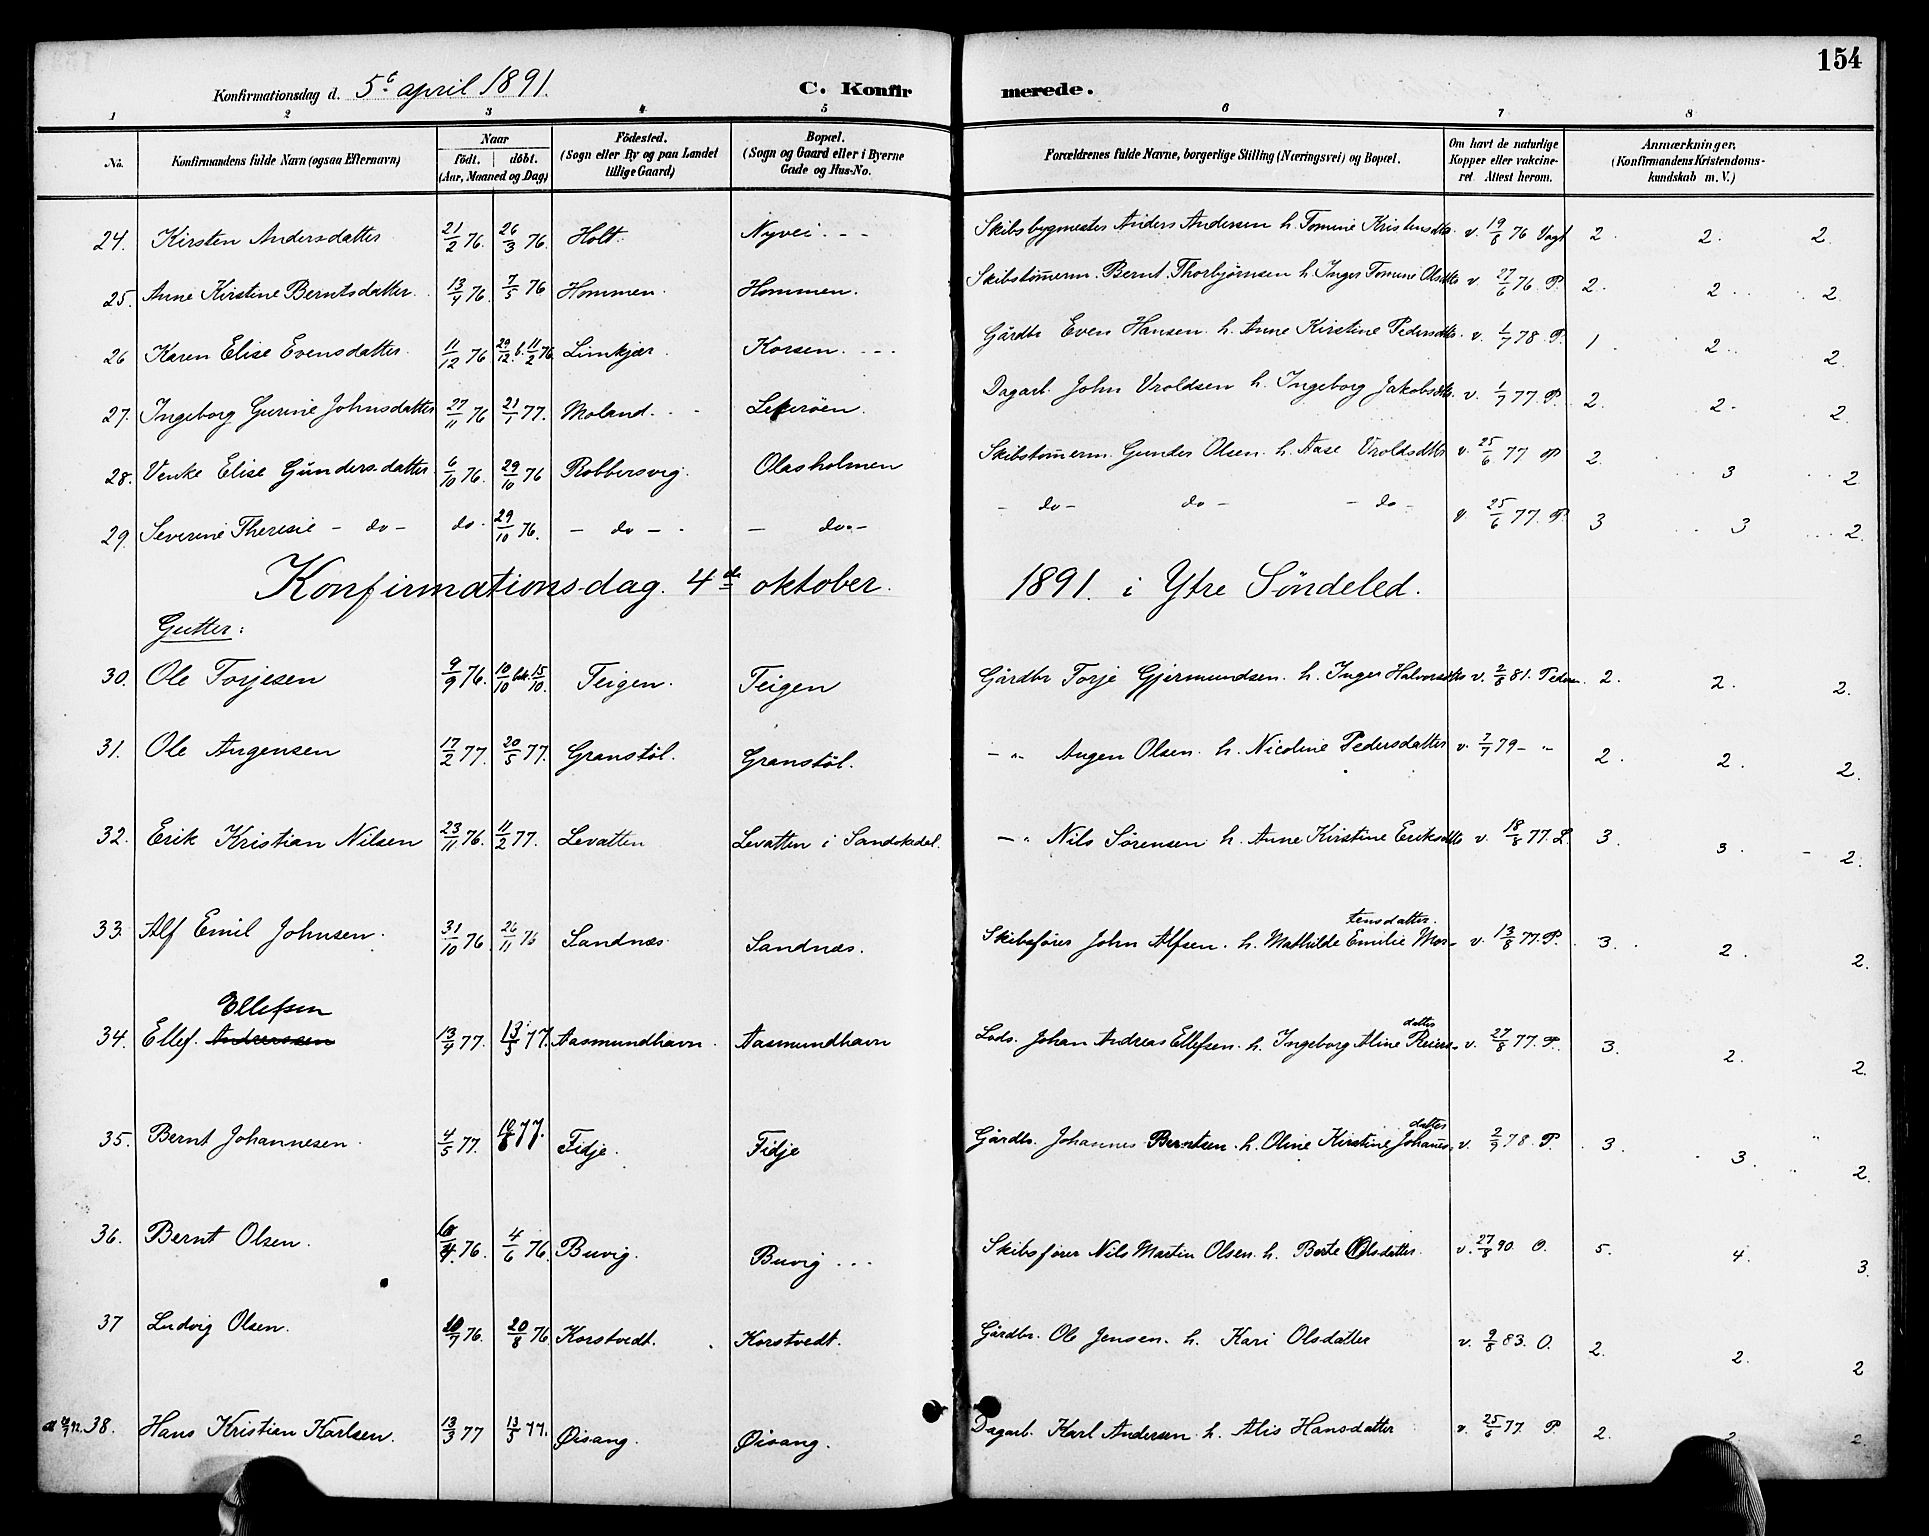 154
Konfirmationsdag d. 5te april 1891. C. Konfirmerede.
1 2 3 4 5 6 7 8
No. Konfirmandens fulde Navn (ogsaa Efternavn) Naar födt. döbt. (Aar, Maaned og Dag) Födested. (Sogn eller By og paa Landet tillige Gaard) Bopæl. (Sogn og Gaard eller i Byerne Gade og Hus-No. Forældrenes fulde Navne, borgerlige Stilling (Næringsvei) og Bopæl. Om havt de naturlige Kopper eller vakcineret. Attest herom. Anmærkninger, (Konfirmandens Kristendomskundskab m. V.)
24. Kirsten Andersdatter 21/2 76. 26/3 76. Holt. Nyvei. Skibsbygmester Anders Andersen h. Tomine Kristensdtr. v. 19/8 76 Vogt 2. 2. 2.
25. Anne Kirstine Berntsdatter. 13/4 76. 7/5 76 Hommen. Hommen. Skibstømerm. Bernt Thorbjørnsen h. Inger Tomine Olsdtr v. 27/6 76 P. 2. 2. 2.
26 Karen Elise Evensdatter. 11/12 76 29/12 b. 11/2 76. Limkjær. Korsen. Gårdbr Even Hansen. h. Anne Kirstine Pedersdtr. v. 1/7 78 P. 1. 2. 2.
27. Ingeborg Gurine Johnsdatter 27/11 76 21/1 77. Moland. Lekerøen. Dagarb. John Vroldsen h. Ingeborg Jakobsdtr. v. 1/7 77 P. 2. 2. 2.
28. Venke Elise Gundersdatter. 6/10 76. 29/10 76 Robbersvig. Olasholmen Skibstømerm. Gunder Olsen. h. Aase Vroldsdtr v. 25/6 77 P 2. 3 2.
29. Severine Theresie - do - do. 29/10 76. - do - - do. - - do - do - do - v. 25/6 77. P. 3 3 2.
Konfirmationsdag. 4de oktober. 1891. i Ytre Söndeled.
Gutter:
30. Ole Torjesen 9/9 76. 10/10 bek. 15/10. Teigen. Teigen Gårdbr Torje Gjermundsen. h. Inger Halvorsdtr v. 2/8 81. Peders. 2. 2. 2.
31. Ole Augensen 17/2 77. 20/5 77. Granstöl. Granstöl. - " Augen Olsen. h. Nicoline Pedersdatter v. 2/7 79 - " 2. 2. 2.
32. Erik Kristian Nilsen 23/11 76. 11/2 77. Levatten Levatten i Sandokedal. - " Nils Sørensen h. Anne Kirstine Eriksdtr v. 18/8 77. L. 3. 3. - 2.
33. Alf Emil Johnsen. 31/10 76 26/11 76 Sandnæs. Sandnæs. Skibsfører John Alfsen. h. Mathilde Emilie Mortensdatter. v. 13/8 77. P. 3. 2. 2.
34. Ellef. Andreassen Ellefsen 13/4 77. 13/5 77. Aasmundhavn. Aasmundhavn Lods. Johan Andreas Ellefsen. h. Ingeborg Aline Reiersdatter v. 27/8 77. P. 3. 2. 2.
35. Bernt Johannesen. 4/5 77. 10/6 77. Fidje. Fidje Gårdbr. Johannes Berntsen. h. Oline Kirstine Johanesdatter v. 2/7 78. P. 3. 3. 2.
36. Bernt Olsen. 6/4. 76. 4/6 76. Buvig. Buvig ... Skibsfører Nils Martin Olsen. h. Berte Olsdatter. v. 27/8 90. O. 5. 4. 3.
37 Ludvig Olsen. 10/7 76. 20/8 76. Korstvedt. Korstvedt. Gårdbr. Ole Jensen. h. Kari Olsdatter v. 9/8 83. O. 2. 2. 2
38. Hans Kristian Karlsen. 13/3 77 13/5 77. Øisang. Øisang. Dagarb. Karl Andersen. h. Alis Hansdatter v. 25/6 77. P. 2. 2. 2.